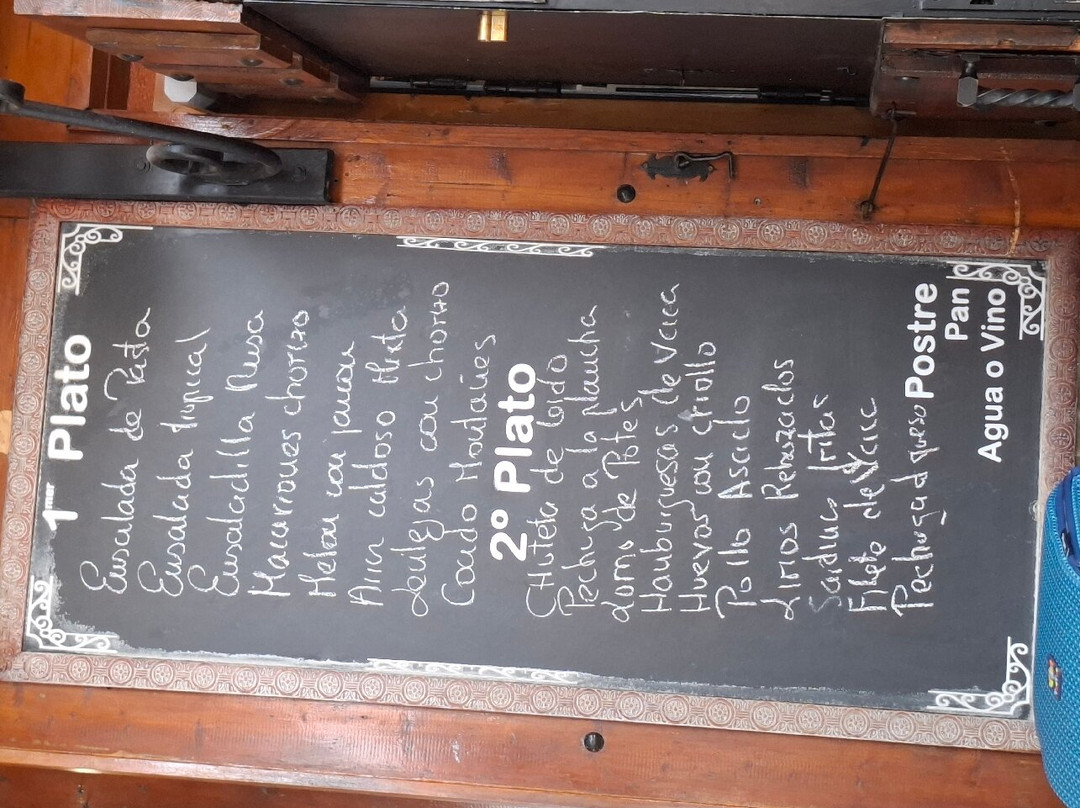 1mer Plato
Ensalada de Pasta
Ensalada tropical
Ensaladilla Rusa
Macarrones chorizo
Melon con jamon
Arroz caldoso Mixto
Lentejas con chorizo
Cocido Montañes
2º Plato
Chuleta de Cerdo
Pechuga a la plancha
Lomo de Potes
Hamburguesas de Vaca
Huevos con criollo
Pollo Asado
Lirios Rebozados
Sardinas fritas
Filete de Vaca
Pechuga d queso
Postre
Pan
Agua o Vino